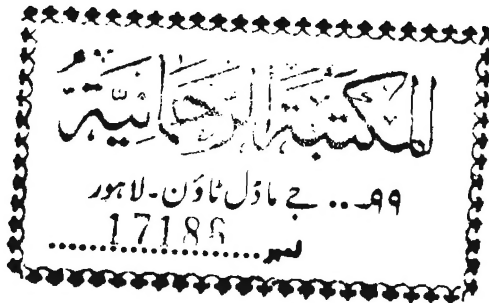 المكتبة الرحمانية
۹۹... جے ماڈل ٹاؤن۔ لاہور
نمبر 17186